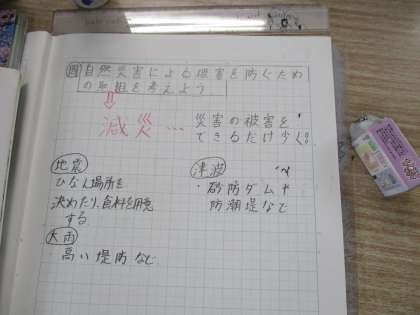 問 自然災害による被害を防ぐため
の取組を考えよう。
減災…
災害の被害を
できるだけ少く。
地震
ひなん場所を
決めたり、食料を用意
する
大雨
高い堤防など
津波
砂防ダムや
防潮堤など